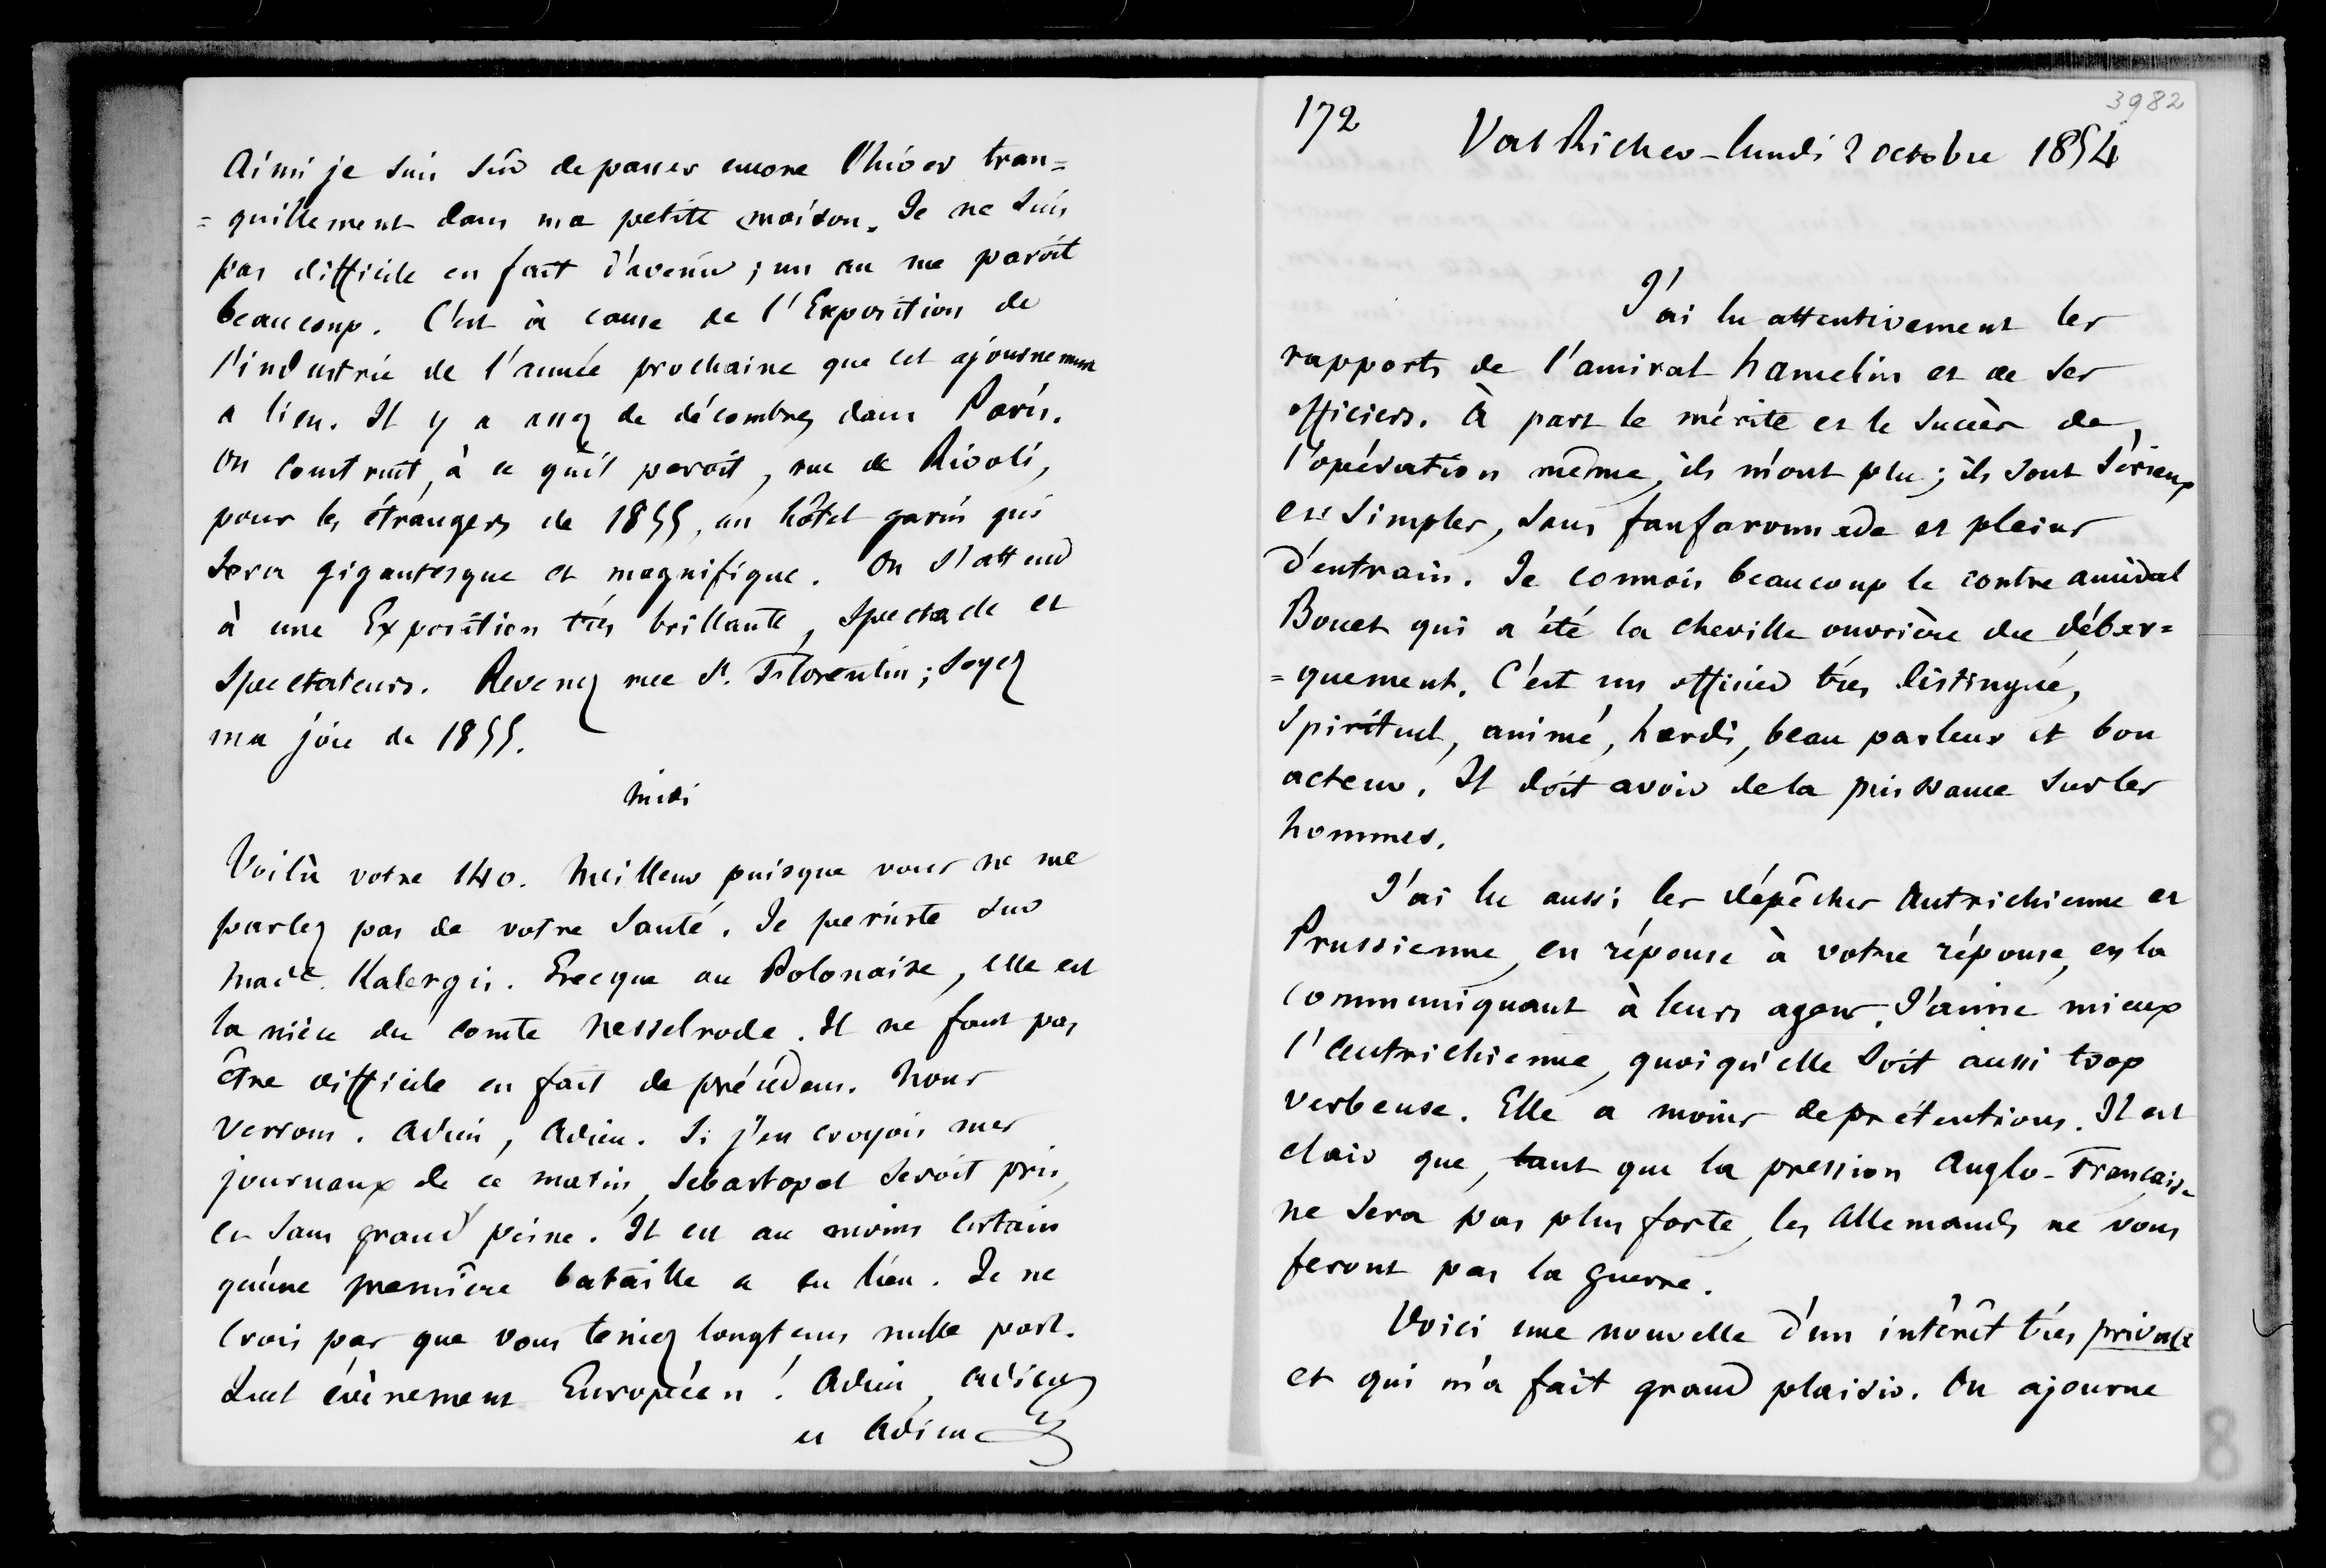 Ainsi je suis sûr de passer encore l'hiver tran=
=quillement dans ma petite maison. Je ne suis
pas difficile en fait d'avenir ; un an me paroît
beaucoup. C'est à cause de l'Exposition de
l'industrie de l'année prochaine que cet ajournement
a lieu. Il y a assez de décombres dans Paris.
On construit, à ce qu'il paroît, rue de Rivoli,
pour les étrangers de 1855, un hôtel garni qui
sera gigantesque et magnifique. On s'attend
à une Exposition très brillante, spectacle et
spectateurs. Revenez rue St. Florentin ; soyez
ma joie de 1855.
Midi
Voilà votre 140. Meilleur puisque vous ne me
parlez pas de votre santé. Je persiste sur
Made. Kalergis. Grecque ou Polonaise, elle est
la nièce du comte Nesselrode. Il ne faut pas
être difficile en fait de précédens. Nous
verrons. Adieu, Adieu. Si j'en croyois mes
journaux de ce matin, Sebastopol seroit pris,
et sans grand' peine. Il est au moins certain
qu'une première bataille a eu lieu. Je ne
crois pas que vous teniez longtems nulle part.
Quel évènement Européen ! Adieu, adieu
et Adieu
3982
172
Val Richer - lundi 2 octobre 1854
J'ai lu attentivement les
rapports de l'amiral hamelin et de ses
officiers. À part le mérite et le succès de
l'opération même, ils m'ont plu ; ils sont sérieux
et simples, sans fanfaronnade et pleins
d'entrain. Je connois beaucoup le contre amiral
Bouet qui a été la cheville ouvrière du débar=
=quement. C'est un officier très distingué,
spirituel, animé, hardi, beau parleur et bon
acteur. Il doit avoir de la puissance sur les
hommes.
J'ai lu aussi les dépêches Autrichienne et
Prussienne, en réponse à votre réponse, en la
communiquant à leurs agens. J'aime mieux
l'Autrichienne, quoiqu'elle soit aussi trop
verbeuse. Elle a moins de prétentions. Il est
clair que, tant que la pression Anglo-Française
ne sera pas plus forte, les Allemands ne vous
feront pas la guerre.
Voici une nouvelle d'un intérêt très private
et qui m'a fait grand plaisir. On ajourne
8